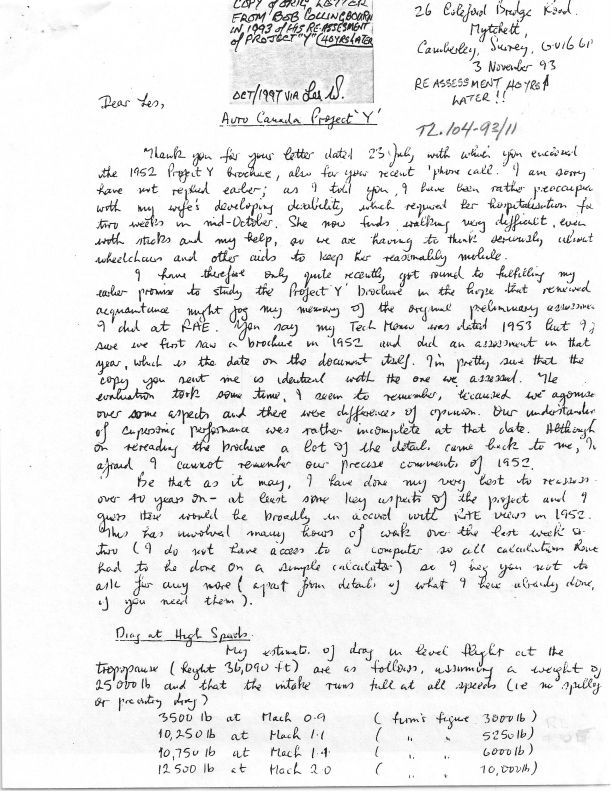 COPY of ORIG LETTER
FROM BOB COLLINGBOURN
IN 1993 of HIS RE-ASSESSMENT
of PROJECT "Y" (40 YRS LATER
OCT/1997 VIA Les W.
26 Coleford Bridge Road.
Mytchett,
Camberley, Surrey, GU16 6
3 November 93
RE ASSESSMENT 40 YRS
LATER!!
TL.104-93/11
Dear Les,
Avro Canada Project 'Y'
Thank you for your letter dated 23 July with which you enclosed
the 1952 Project Y brochure, also for your recent 'phone call. I am sorry
have not replied earlier; as I told you, I have been rather preoccupie
with my wife's developing disability which required her hospitalisation for
two weeks in mid-October. She now finds walking very difficult, even
with sticks and my help, so we are having to think seriously about
wheelchairs and other aids to keep her reasonably mobile.
I have therefore only quite recently got round to fulfilling my
earlier promise to study the Project 'Y' brochure in the hope that renewed
acquaintance might jog my memory of the original preliminary assessmen
I did at RAE. You say my Tech Memo was dated 1953 but I'm
sure we first saw a brochure in 1952 and did an assessment in that
year, which is the date on the document itself. I'm pretty sure that the
copy you sent me is identical with the one we assessed. The
evaluation took some time, I seem to remember, because we agonise
over some aspects and there were differences of opinion. Our understandin
of supersonic performance was rather incomplete at that date. Although
on rereading the brochure a lot of the details came back to me, I'm
afraid I cannot remember our precise comments of 1952.
Be that as it may, I have done my very best to reassess
over 40 years on - at least some key aspects of the project and I
guess these would be broadly in accord with RAE views in 1952.
This has involved many hours of work over the last week or
two (I do not have access to a computer so all calculations have
had to be done on a simple calculator) so I beg you not to
ask for any more (apart from details of what I have already done,
if you need them).
Drag at High Speeds.
My estimates of drag in level flight at the
tropopause (height 36,090 ft) are as follows, assuming a weight of
25000 lb and that the intake runs full at all speeds (ie no spillage
or preentry drag)
3500 lb at Mach 0.9 (firm's figure 3000 lb)
10,250 lb at Mach 1.1 ( " " 5250 lb)
10,750 lb at Mach 1.4 ( " " 6000 lb)
12500 lb at Mach 2.0 ( " " 10,000 lb)